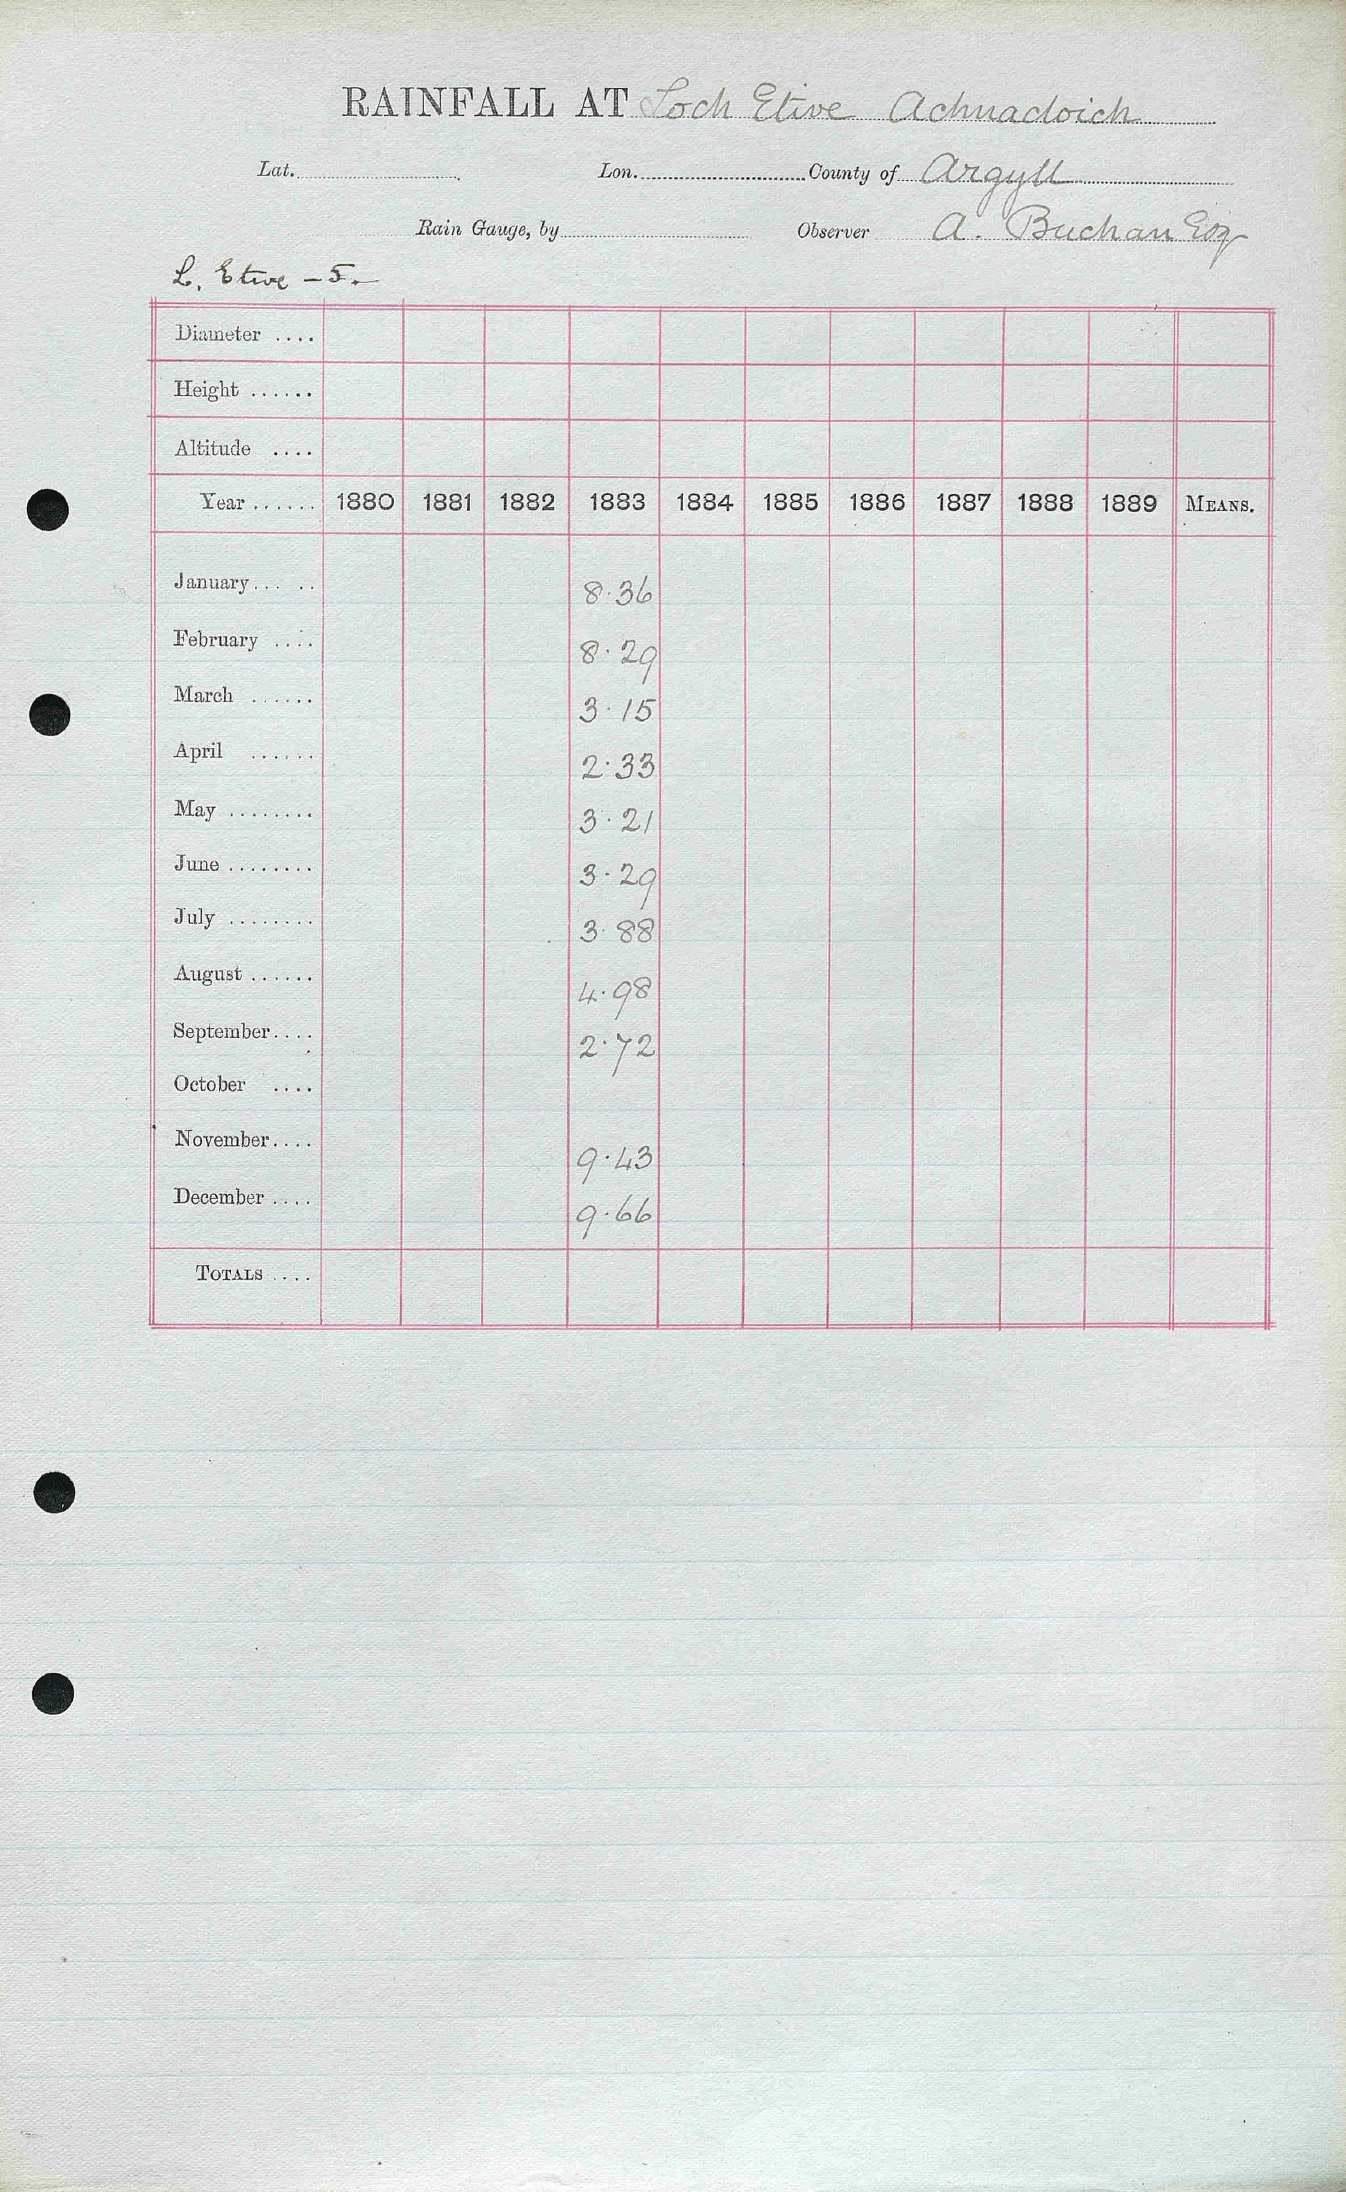 RAINFALL AT Loch Etive Achnacloich
Lat. Lon. County of Argyll
Rain Gauge, by Observer A. Buchan Esq
L. Etive - 5.
Diameter ....
Height ......
Altitude ....
Year ...... 1880 1881 1882 1883 1884 1885 1886 1887 1888 1889 MEANS.
January ... .. 8.36
February .... 8.29
March ...... 3.15
April ...... 2.33
May ........ 3.21
June ........ 3.29
July ........ 3.88
August ...... 4.98
September .... 2.72
October ....
November .... 9.43
December .... 9.66
TOTALS ....